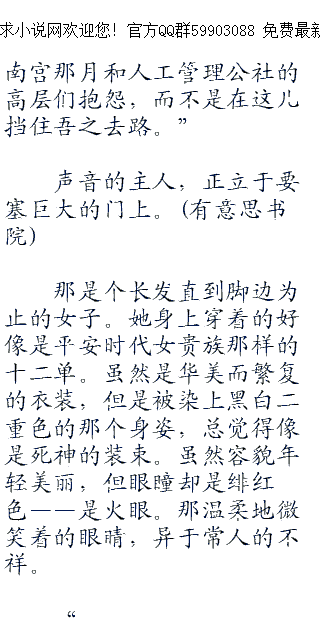 求小说网欢迎您！官方QQ群59903088 免费最新
南宫那月和人工管理公社的
高层们抱怨，而不是在这儿
挡住吾之去路。”
声音的主人，正立于要
塞巨大的门上。(有意思书
院)
那是个长发直到脚边为
止的女子。她身上穿着的好
像是平安时代女贵族那样的
十二单。虽然是华美而繁复
的衣装，但是被染上黑白二
重色的那个身姿，总觉得像
是死神的装束。虽然容貌年
轻美丽，但眼瞳却是绯红
色——是火眼。那温柔地微
笑着的眼睛，异于常人的不
祥。
“